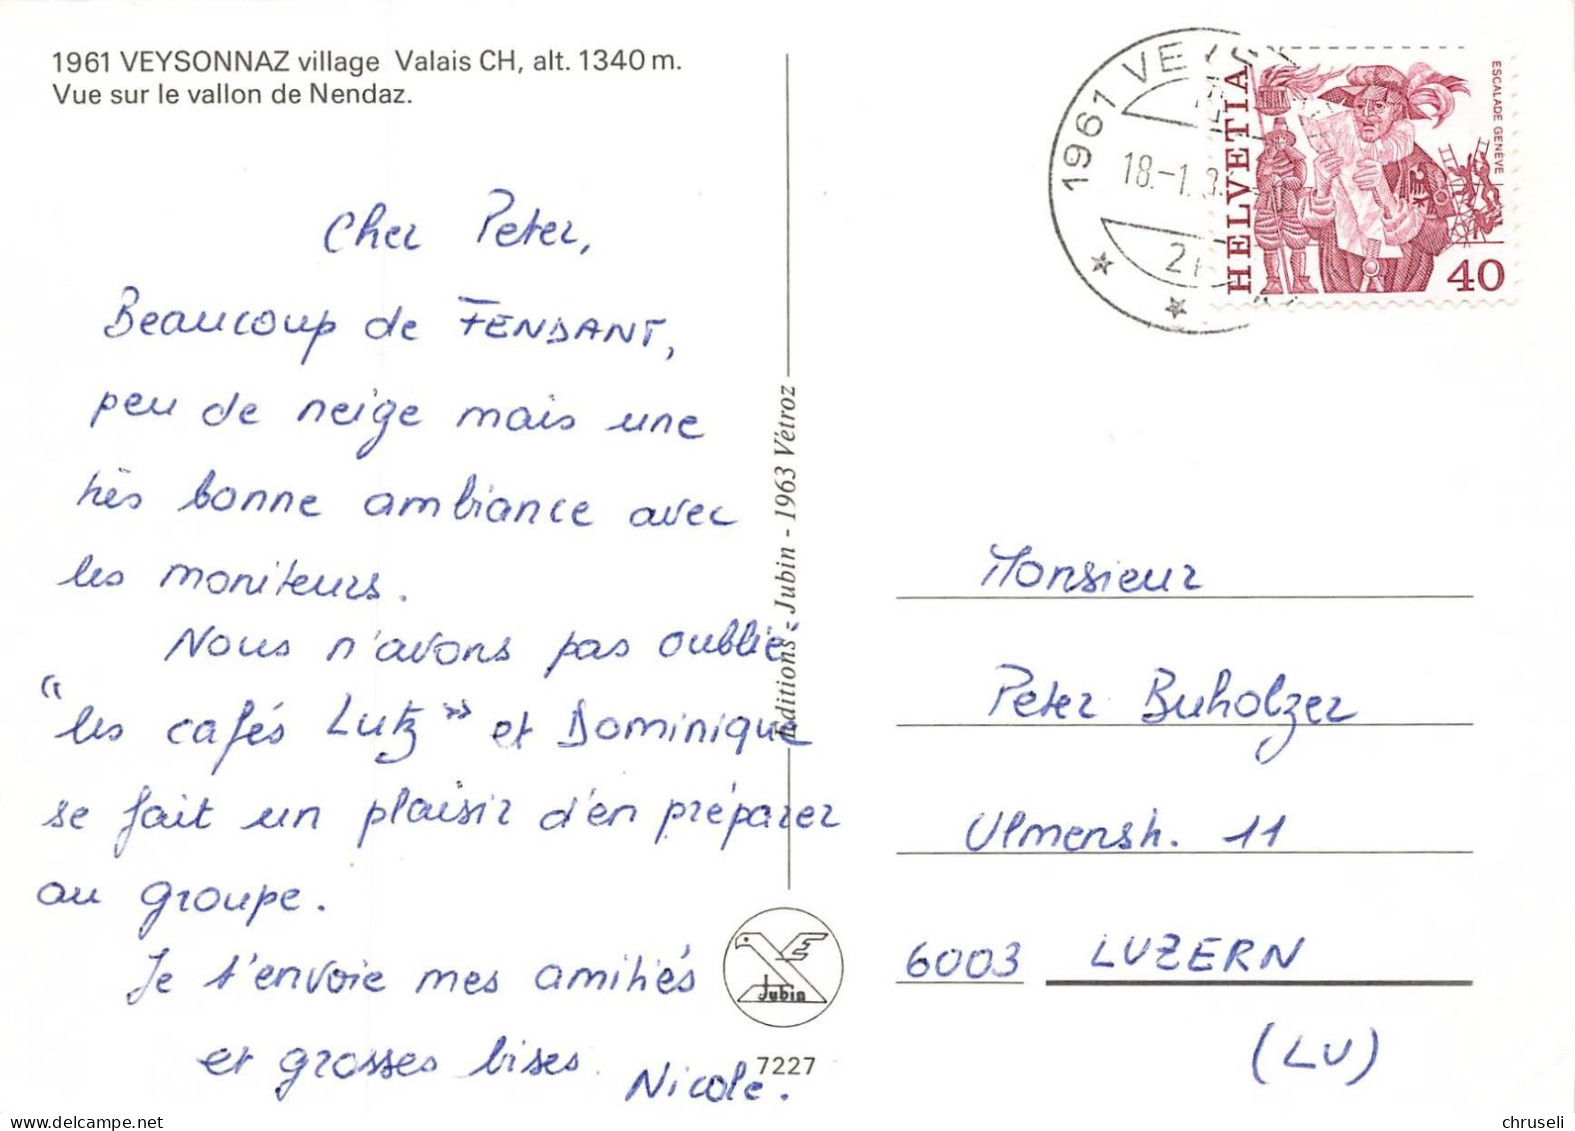 1961 VEYSONNAZ village Valais CH, alt. 1340 m.
Vue sur le vallon de Nendaz.
Cher Peter,
Beaucoup de FENDANT,
peu de neige mais une
très bonne ambiance avec
les moniteurs.
Nous n'avons pas oublié
"les cafés Lutz" et Dominique
se fait un plaisir d'en préparer
au groupe.
Je t'envoie mes amitiés
et grosses bises.
Nicole.
Editions - Jubin - 1963 Vétroz
Jubin
7227
1961 VEYS
18.-1.8
21
HELVETIA
ESCALADE GENÈVE
40
Monsieur
Peter Buholzer
Ulmenstr. 11
6003 LUZERN
(LU)
chruseli